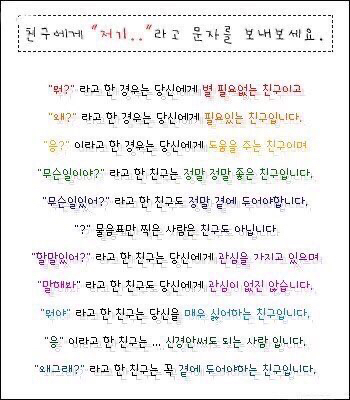 친구에게 "저기.." 라고 문자를 보내보세요.
"뭐?" 라고 한 경우는 당신에게 별 필요없는 친구이고
"왜?" 라고 한 경우는 당신에게 필요있는 친구입니다.
"응?" 이라고 한 경우는 당신에게 도움을 주는 친구이며
"무슨일이야?" 라고 한 친구는 정말 정말 좋은 친구입니다.
"무슨일있어?" 라고 한 친구도 정말 곁에 두어야합니다.
"?" 물음표만 찍은 사람은 친구도 아닙니다.
"할말있어?" 라고 한 친구는 당신에게 관심을 가지고 있으며
"말해봐" 라고 한 친구도 당신에게 관심이 없진 않습니다.
"뭐야" 라고 한 친구는 당신을 매우 싫어하는 친구입니다.
"응" 이라고 한 친구는 ... 신경안써도 되는 사람 입니다.
"왜그래?" 라고 한 친구는 꼭 곁에 두어야하는 친구입니다.